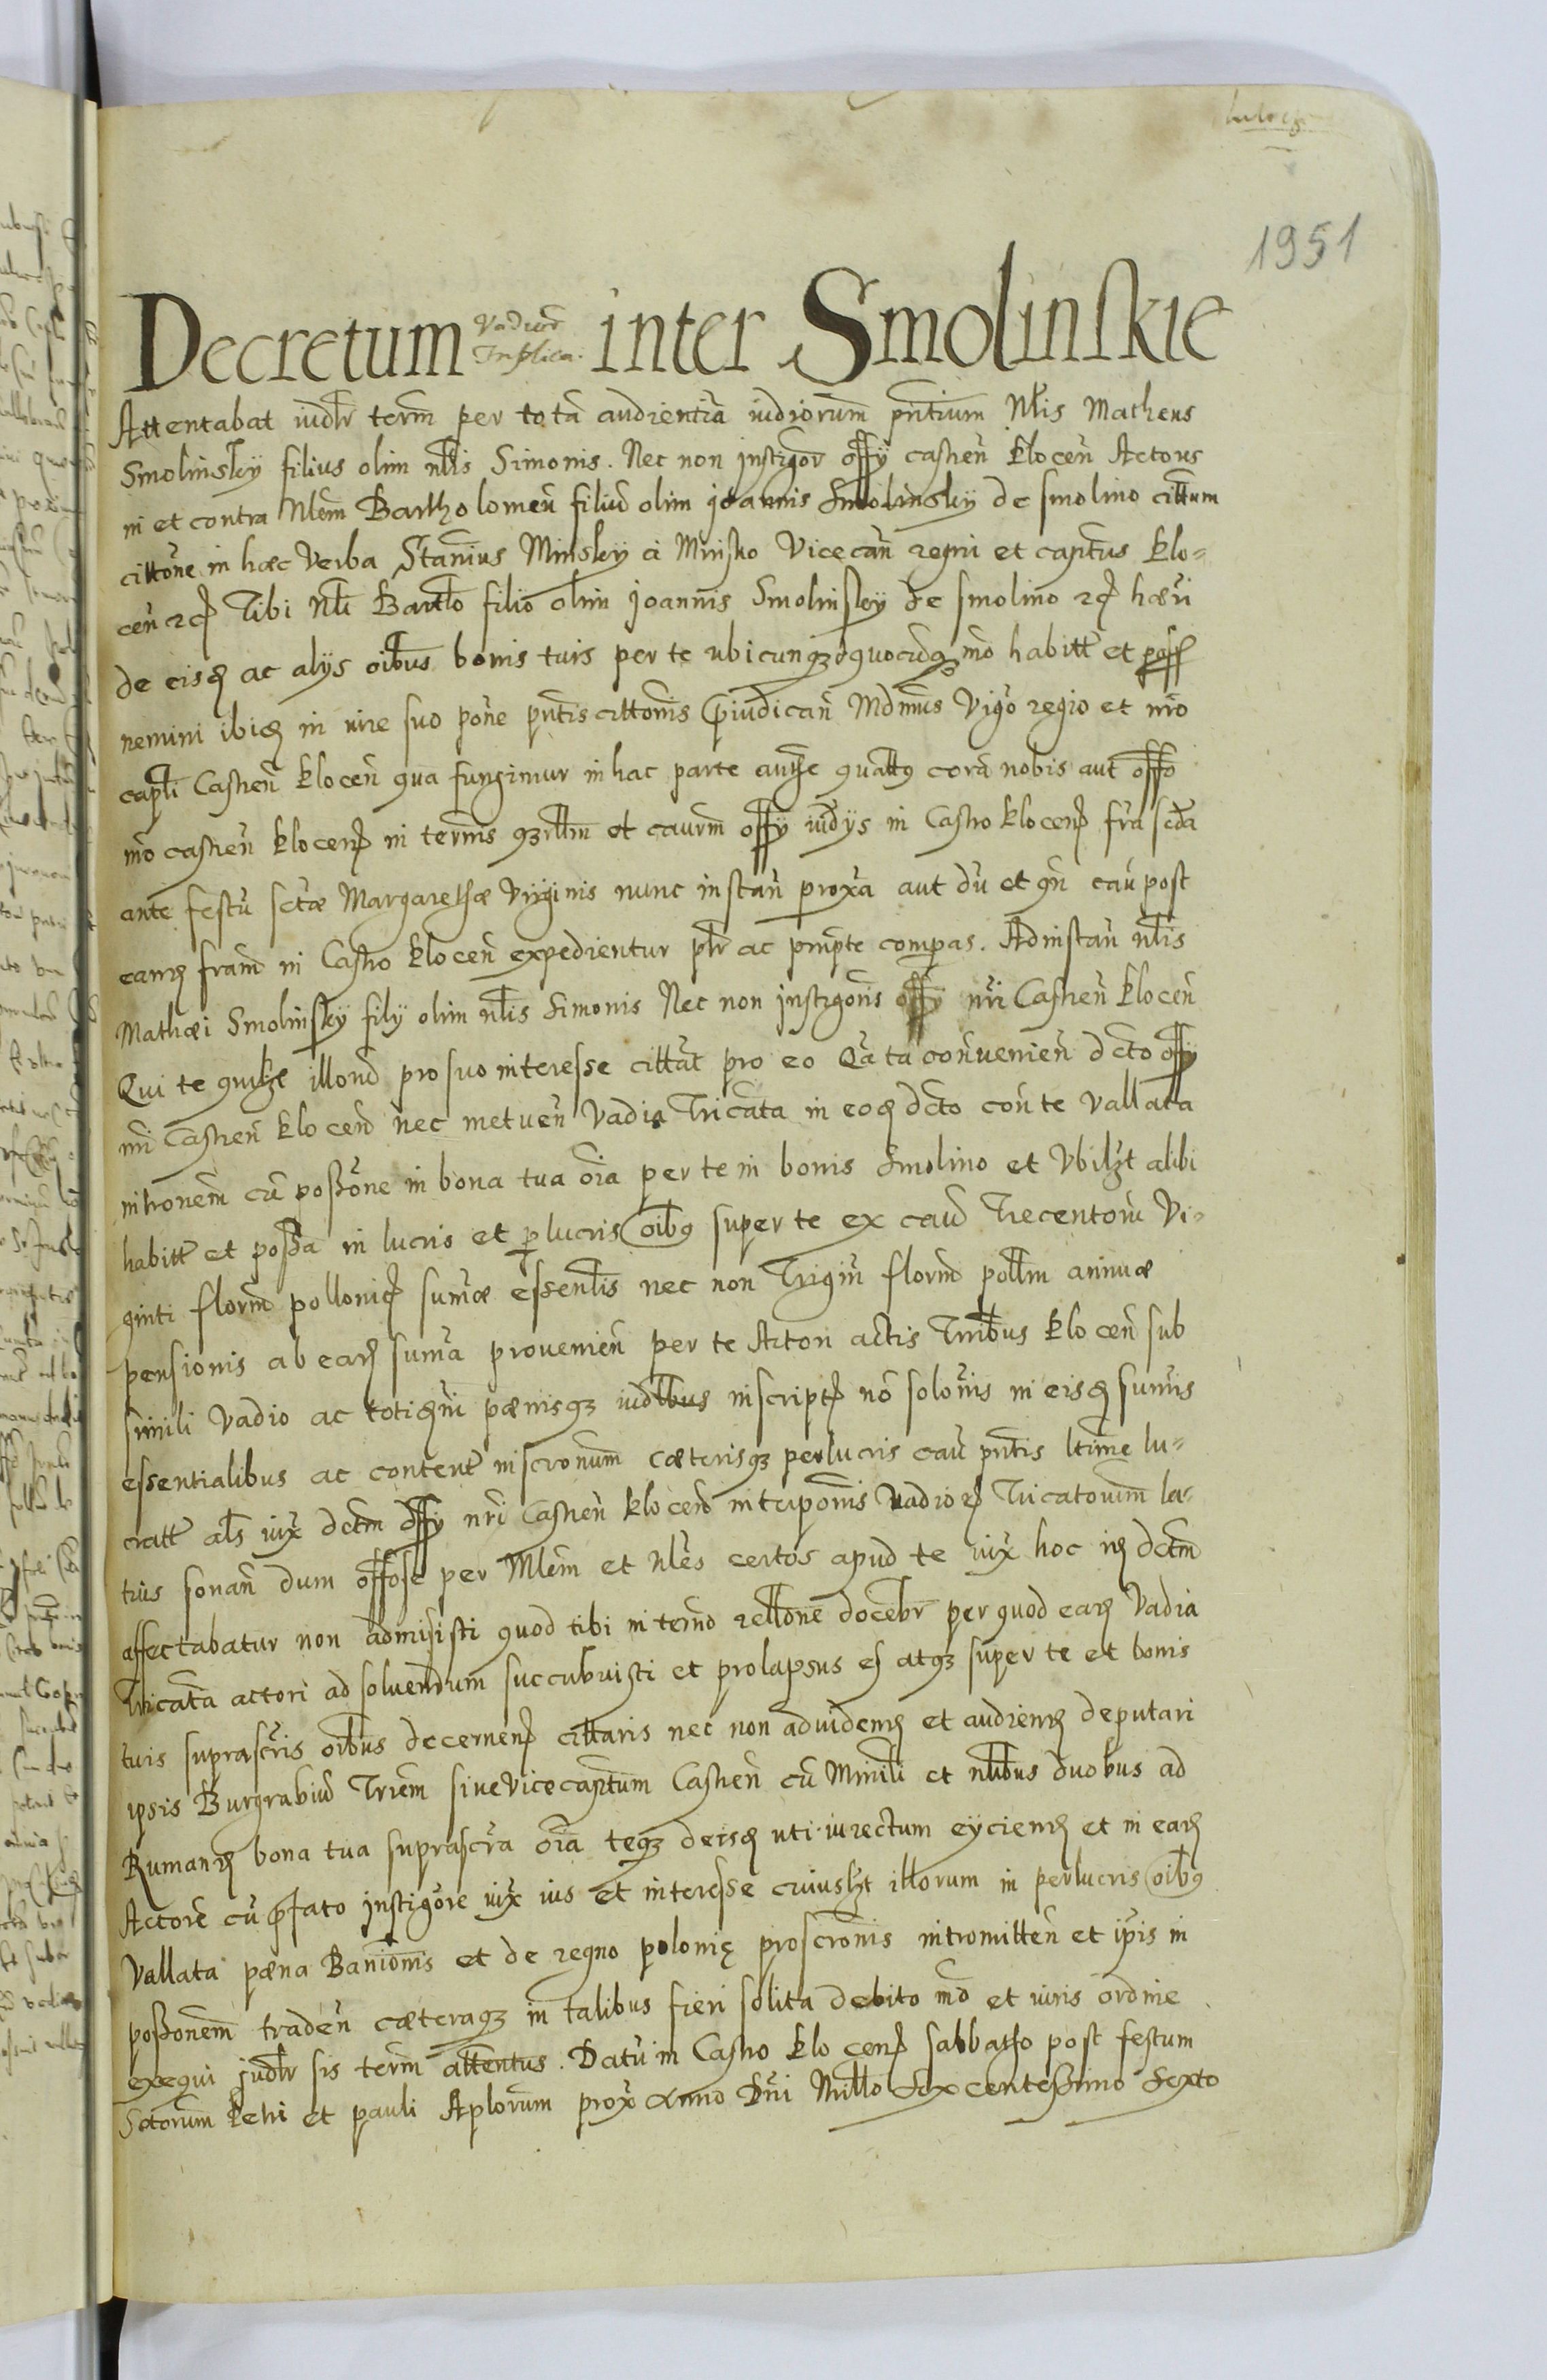 1951
Decretum Vadiorũ Triplica. inter Smolinskie
Attentabat iudlr term̃ per totã audientiã iudiorum pñtium Nlis Matheus
Smolinsky filius olim nllis Simonis. Nec non instigõr offy castreñ klocen̄ Actores
in et contra Nlem̃ Bartholomeũ filiũ olim joannis Smolinsky de smolino cittum
cittõne in hæc Verba Stanius Minsky a Minsko Vicecañ regni et captñus klo=
ceñ rc Tibi Nli Bartlo filio olim joannis Smolinsky de smolino rc hæri
de eisd ac alys oibus bonis tuis per te ubicunqȝ et quocũqȝ mõ habitt et poss
nemini ibid in iure suo põne pñtis cittonis p̄iudicañ Mdmus Vigõ regio et nrõ
capt̃li Castreñ kloceñ qua fungimur in hac parte authe quattꝰ corã nobis aut offo
nrõ castreñ kloceñ in termis qȝrllm̃ et caurm̃ offy iudys in Castro kloceñ fr̃a scda
ante festũ sctæ Margarethæ Virginis nunc instañ proxa aut dũ et qñ cau post
eand fram̃ in Castro kloceñ expedientur pl̃r ac pmpte compas. Ad instañ nlis
Mathæi Smolinsky fily olim nlis Simonis Nec non instigoris offy nri Castreñ kloceñ
Qui te quilȝt illorũ pro suo interesse cittat pro eo Qã ta conveniẽn dcto offy
nri Castreñ kloceñ nec metueñ Vadia Tricata in eod dcto con te Vallata
intronem̃ cũ possone in bona tua oĩa per te in bonis Smolino et Vbilȝt alibi
habitt et possa in lucris et perlucris oibꝰ super te ex caũ Trecentorũ Vi=
ginti florñ pollonic sumæ essenlis nec non Trigiñ florñ pollm̃ annuæ
pensionis ab ead suma proueniẽn per te Actori actis Trribus kloceñ sub
simili Vadio ac totidm̃ pænisqȝ iudlbus inscript nõ solonis in eisd sumis
essentialibus ac content inscronum cæterisqȝ perlucris cau pñtis ltime lu=
cratt als iux dctm̃ offy nri Castreñ kloceñ interponis Vadior Tricatorum la=
tius sonañ dum offose per Mlem̃ et Nles certos apud te iux hoc id dctm̃
affectabatur non admisisti quod tibi in termo rellone docebr per quod ead Vadia
Tricata actori ad soluendum succubuisti et prolapsus es atqȝ super te et bonis
tuis suprascris oibus decernen cittaris nec non ad videnđ et audienđ deputari
ipsis Burgrabiũ Triem̃ siue Vicecaptum Castreñ cũ Minrli et nlibus duobus ad
Rumanđ bona tua suprascra oĩa teqȝ deisd uti iurectum eycienđ et in ead
Actore cũ p̄fato instigore iux ius et interesse cuiuslȝt illorum in perlucris oibꝰ
Vallata pæna Banionis et de regno polonię proscronis intromitteñ et ipis in
possonem tradeñ cæteraqȝ in talibus fieri solita debito mõ et iuris ordine
exequi judlr sis term̃ attentus. Datũ in Castro kloceñ sabbatho post festum
Sctorum Petri et pauli Aplorum prox Anno Dñi Millo Sexcentessimo Sexto